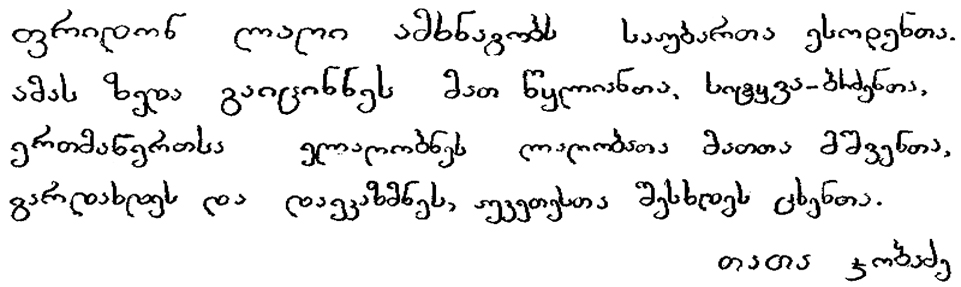 ფრიდონ ლაღი ამხნაგობს საუბართა ესოდენთა.
ამას ზედა გაიცინნეს მათ წყლიანთა, სიტყვა-ბრძენთა,
ერთმანერთსა ელაღობნეს ლაღობათა მათთა მშვენთა,
გარდახდეს და დაეკაზმნეს, უკეთესთა შესხდეს ცხენთა.
თათა ჯობაძე